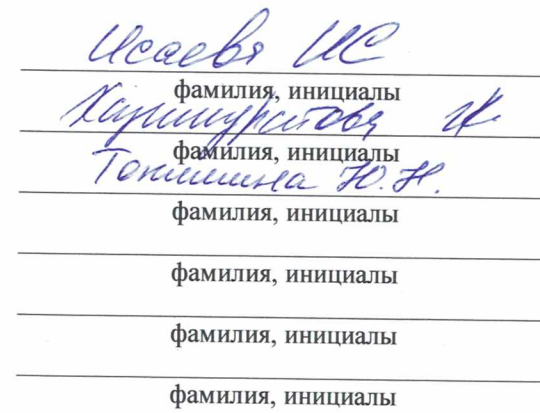 Исаева ИС
фамилия, инициалы
фамилия, инициалы
Ю.Н.
фамилия, инициалы
фамилия, инициалы
фамилия, инициалы
фамилия, инициалы